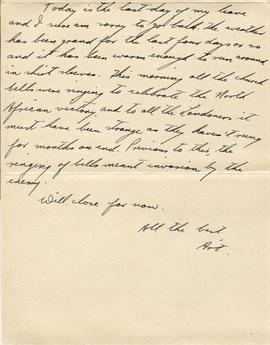 Today is the last day of my leave
and I sure am sorry to go back. The weather
has been grand for the last four days or so
and it has been warm enough to run around
in shirt sleeves. This morning all the church
bells were ringing to celebrate the North
African victory, and to all the Londoners it
must have been strange as they haven't rung
for months on end. Previous to this, the
ringing of bells meant invasion by the
enemy.
Will close for now.
All the best
Art.